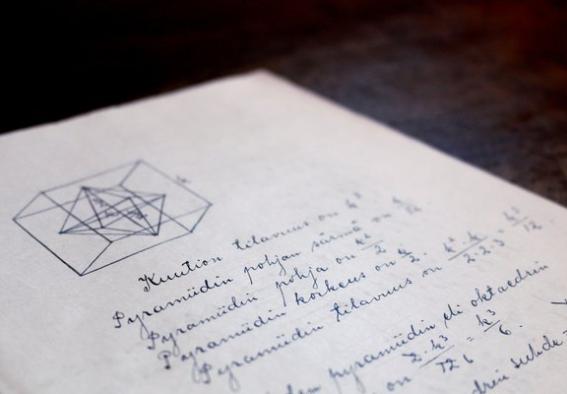 Kuution tilavuus on k³
Pyramiidin pohjan särmä on
Pyramiidin pohja on k²/2
Pyramiidin korkeus on k/2.
Pyramiidin tilavuus on k²·k/2·2·3 = k³/12
pyramiidin eli oktaedrin
on 2·k³/12 = k³/6.
suhde =